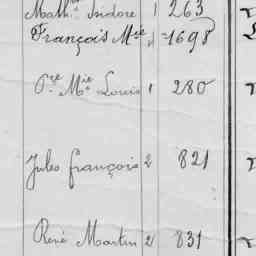 Math.in Isidore 1 263
François Mie " 1698
P.re M.ie Louis 1 280
Jules françois 2 821
René Martin 2 831